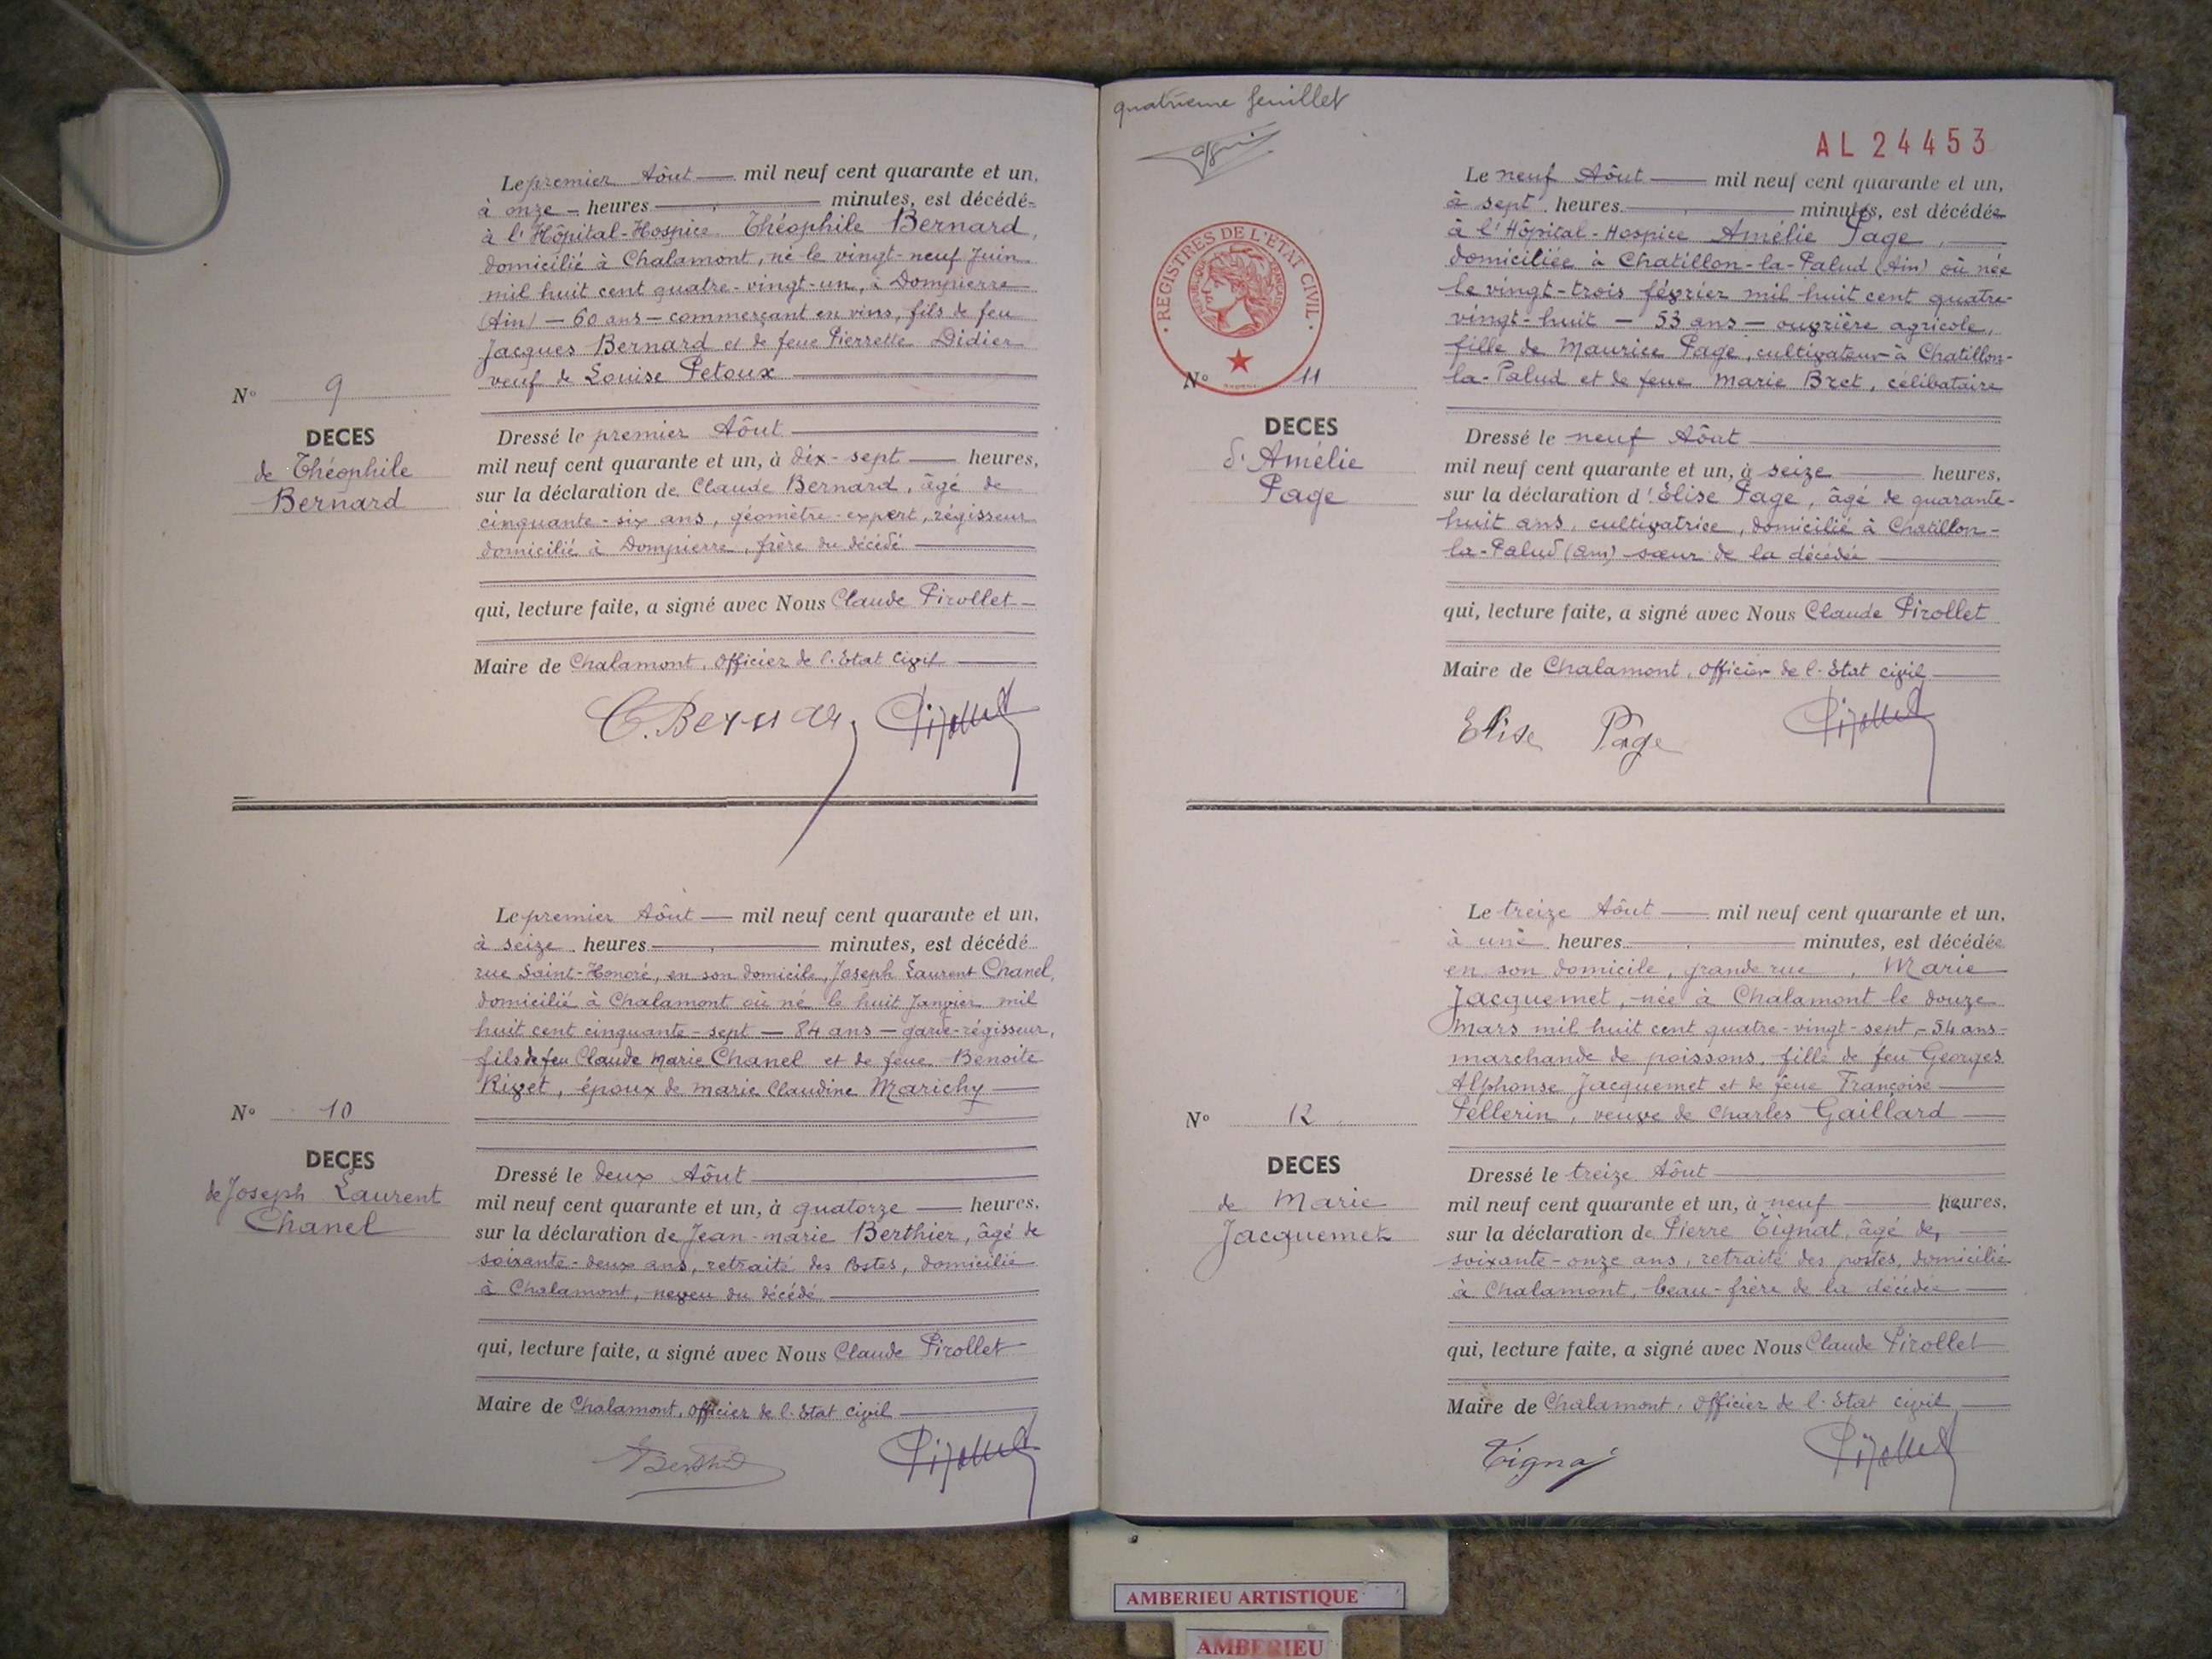 Le premier Aôut — mil neuf cent quarante et un,
à onze — heures — minutes, est décédé
à l'Hôpital-Hospice Théophile Bernard,
domicilié à Chalamont, né le vingt-neuf Juin
mil huit cent quatre-vingt-un, à Dompierre
(Ain) — 60 ans — commerçant en vins, fils de feu
Jacques Bernard et de feue Pierrette Didier
veuf de Louise Petoux
N° 9
DECES
de Théophile
Bernard
Dressé le premier Aôut
mil neuf cent quarante et un, à dix-sept — heures,
sur la déclaration de Claude Bernard, âgé de
cinquante-six ans, géomètre-expert, régisseur
domicilié à Dompierre, frère du décédé
qui, lecture faite, a signé avec Nous Claude Pirollet
Maire de Chalamont, Officier de l'Etat civil
C. Bernard Pirollet
Le premier Aôut — mil neuf cent quarante et un,
à seize heures — minutes, est décédé
rue Saint-Honoré, en son domicile, Joseph Laurent Chanel,
domicilié à Chalamont où né le huit Janvier mil
huit cent cinquante-sept — 84 ans — garde-régisseur,
fils de feu Claude Marie Chanel et de feue Benoite
Rivet, époux de Marie Claudine Marichy
N° 10
DECES
de Joseph Laurent
Chanel
Dressé le deux Aôut
mil neuf cent quarante et un, à quatorze — heures,
sur la déclaration de Jean-Marie Berthier, âgé de
soixante-deux ans, retraité des Postes, domicilié
à Chalamont, neveu du décédé
qui, lecture faite, a signé avec Nous Claude Pirollet
Maire de Chalamont, Officier de l'Etat civil
Berthier Pirollet
quatrieme feuillet
AL 24453
REGISTRES DE L'ETAT CIVIL
Le neuf Aôut — mil neuf cent quarante et un,
à sept heures — minutes, est décédée
à l'Hôpital-Hospice Amélie Page,
domiciliée à Chatillon-la-Palud (Ain) où née
le vingt-trois février mil huit cent quatre-
vingt-huit — 53 ans — ouvrière agricole,
fille de Maurice Page, cultivateur à Chatillon-
la-Palud et de feue Marie Bret, célibataire
N° 11
DECES
d'Amélie
Page
Dressé le neuf Aôut
mil neuf cent quarante et un, à seize — heures,
sur la déclaration d'Elise Page, âgé de quarante-
huit ans, cultivatrice, domicilié à Chatillon-
la-Palud (Ain) sœur de la décédée
qui, lecture faite, a signé avec Nous Claude Pirollet
Maire de Chalamont, Officier de l'Etat civil
Elise Page Pirollet
Le treize Aôut — mil neuf cent quarante et un,
à une heures — minutes, est décédée
en son domicile, grande rue, Marie
Jacquemet, née à Chalamont le douze
Mars mil huit cent quatre-vingt-sept — 54 ans —
marchande de poissons, fille de feu Georges
Alphonse Jacquemet et de feue Françoise
Pellerin, veuve de Charles Gaillard
N° 12
DECES
de Marie
Jacquemet
Dressé le treize Aôut
mil neuf cent quarante et un, à neuf — heures,
sur la déclaration de Pierre Tignat, âgé de
soixante-onze ans, retraité des postes, domicilié
à Chalamont, beau-frère de la décédée
qui, lecture faite, a signé avec Nous Claude Pirollet
Maire de Chalamont, Officier de l'Etat civil
Tignat Pirollet
AMBERIEU ARTISTIQUE
AMBERIEU